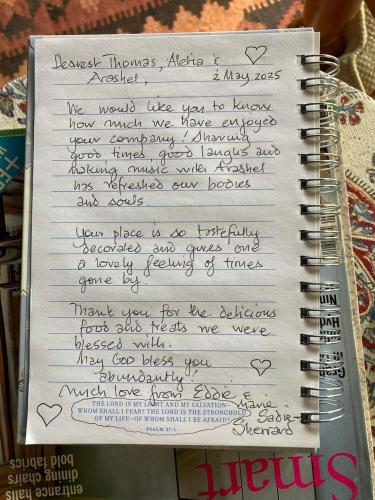 Dearest Thomas, Aletia &
Arashel,
2 May 2025
We would like you to know
how much we have enjoyed
your company! Sharing
good times, good laughs and
making music with Arashel
has refreshed our bodies
and souls.
Your place is so tastefully
decorated and gives one
a lovely feeling of times
gone by.
Thank you for the delicious
food and treats we were
blessed with.
May God bless you
abundantly!
Much love from Eddie &
Marie
Sadie-
Sherrard
THE LORD IS MY LIGHT AND MY SALVATION—
WHOM SHALL I FEAR? THE LORD IS THE STRONGHOLD
OF MY LIFE—OF WHOM SHALL I BE AFRAID?
PSALM 27:1
Smart
entrance halls
dining chairs
bold fabrics